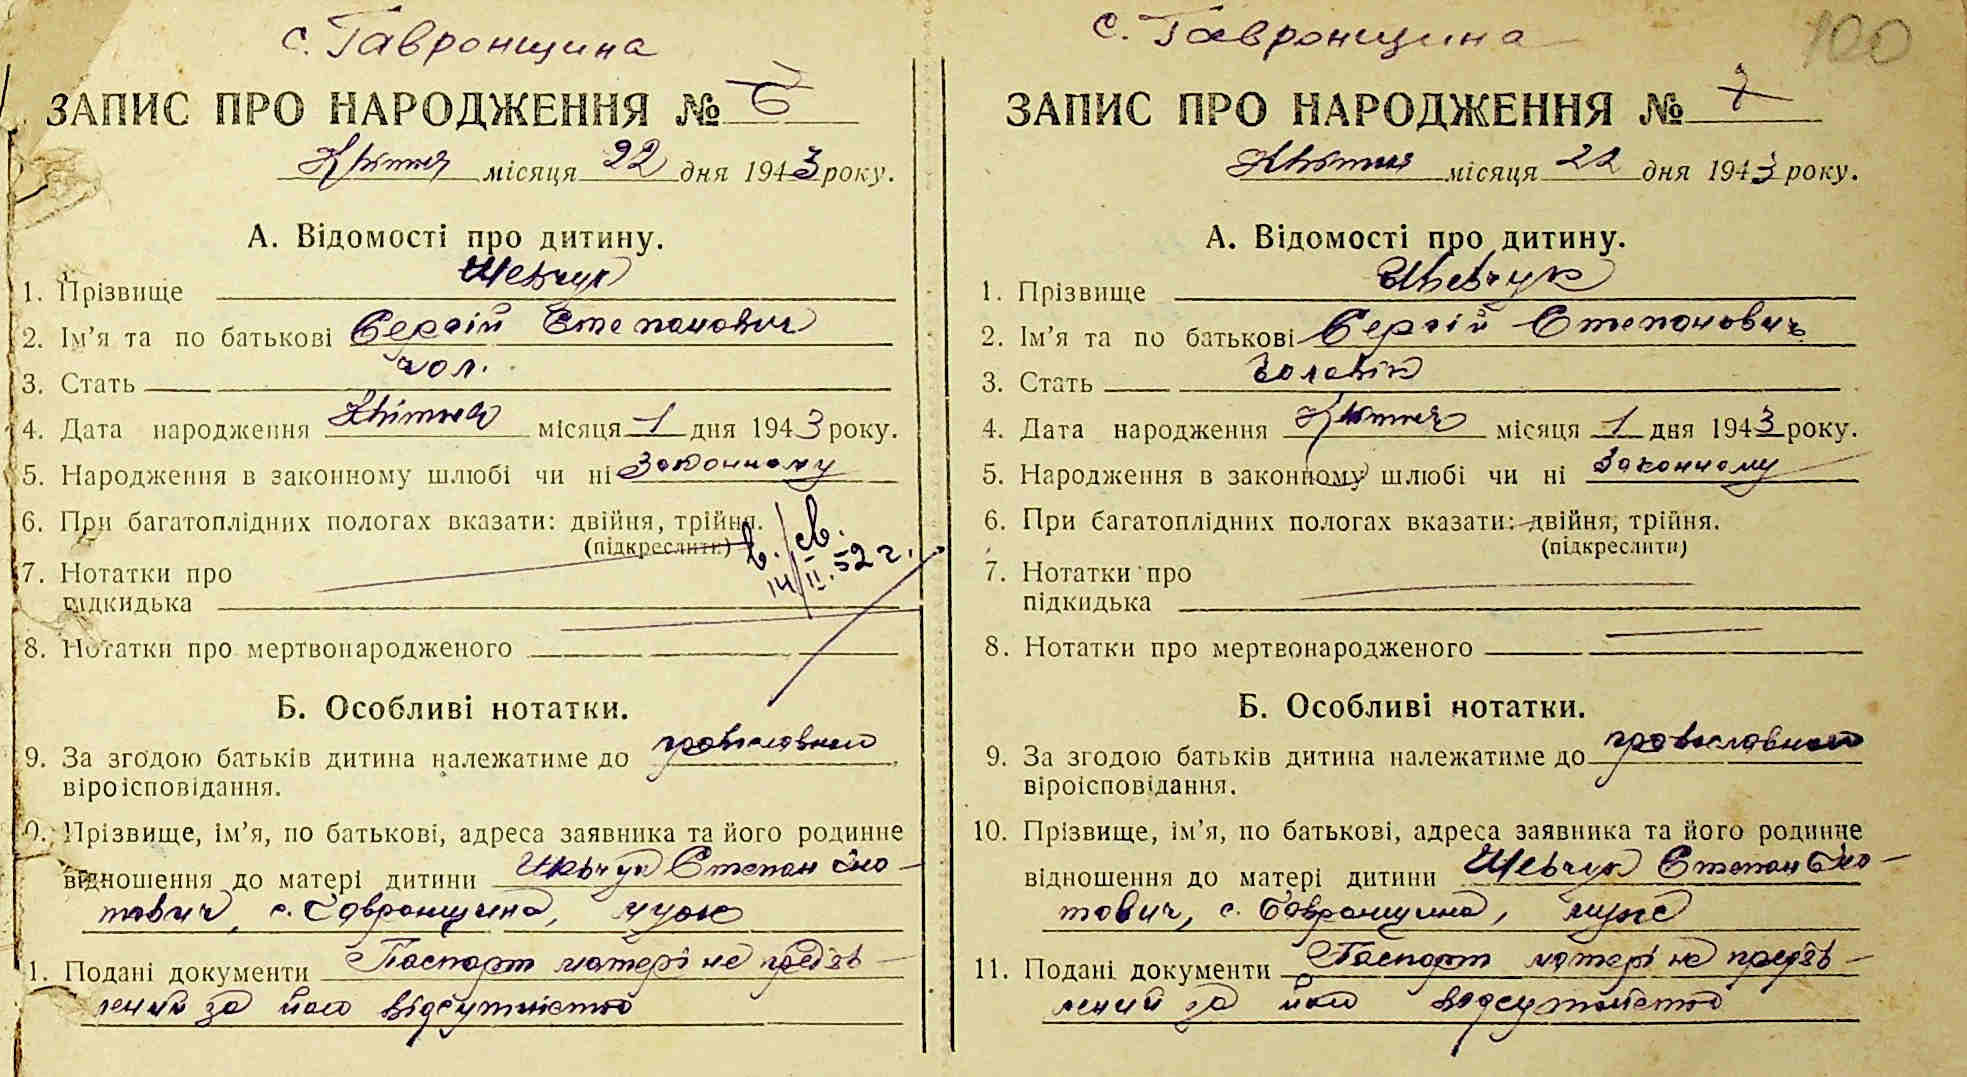 с. Гавронщина
ЗАПИС ПРО НАРОДЖЕННЯ №
Квітня місяця 22 дня 1943 року.
А. Відомості про дитину.
1. Прізвище Шевчук
2. Ім'я та по батькові Сергій Степанович
3. Стать чол.
4. Дата народження Квітня місяця 1 дня 1943 року.
5. Народження в законному шлюбі чи ні Законному
6. При багатоплідних пологах вказати: двійня, трійня.
(підкреслити)
в./св.
14/II.52 г.
7. Нотатки про
підкидька
8. Нотатки про мертвонародженого
Б. Особливі нотатки.
9. За згодою батьків дитина належатиме до православного
віроісповідання.
0. Прізвище, ім'я, по батькові, адреса заявника та його родинне
відношення до матері дитини Шевчук Степан
тович, с. Гавронщина, муж
1. Подані документи Паспорт матері не предяв-
лений за його відсутністю
с. Гавронщина
100
ЗАПИС ПРО НАРОДЖЕННЯ № 7
Квітня місяця 22 дня 1943 року.
А. Відомості про дитину.
1. Прізвище Шевчук
2. Ім'я та по батькові Сергій Степанович
3. Стать Чоловік
4. Дата народження Квітня місяця 1 дня 1943 року.
5. Народження в законному шлюбі чи ні Законному
6. При багатоплідних пологах вказати: двійня, трійня.
(підкреслити)
7. Нотатки про
підкидька
8. Нотатки про мертвонародженого
Б. Особливі нотатки.
9. За згодою батьків дитина належатиме до православного
віроісповідання.
10. Прізвище, ім'я, по батькові, адреса заявника та його родинне
відношення до матері дитини Шевчук Степан
тович, с. Гавронщина, муж
11. Подані документи Паспорт матері не предяв-
лений за його відсутністю